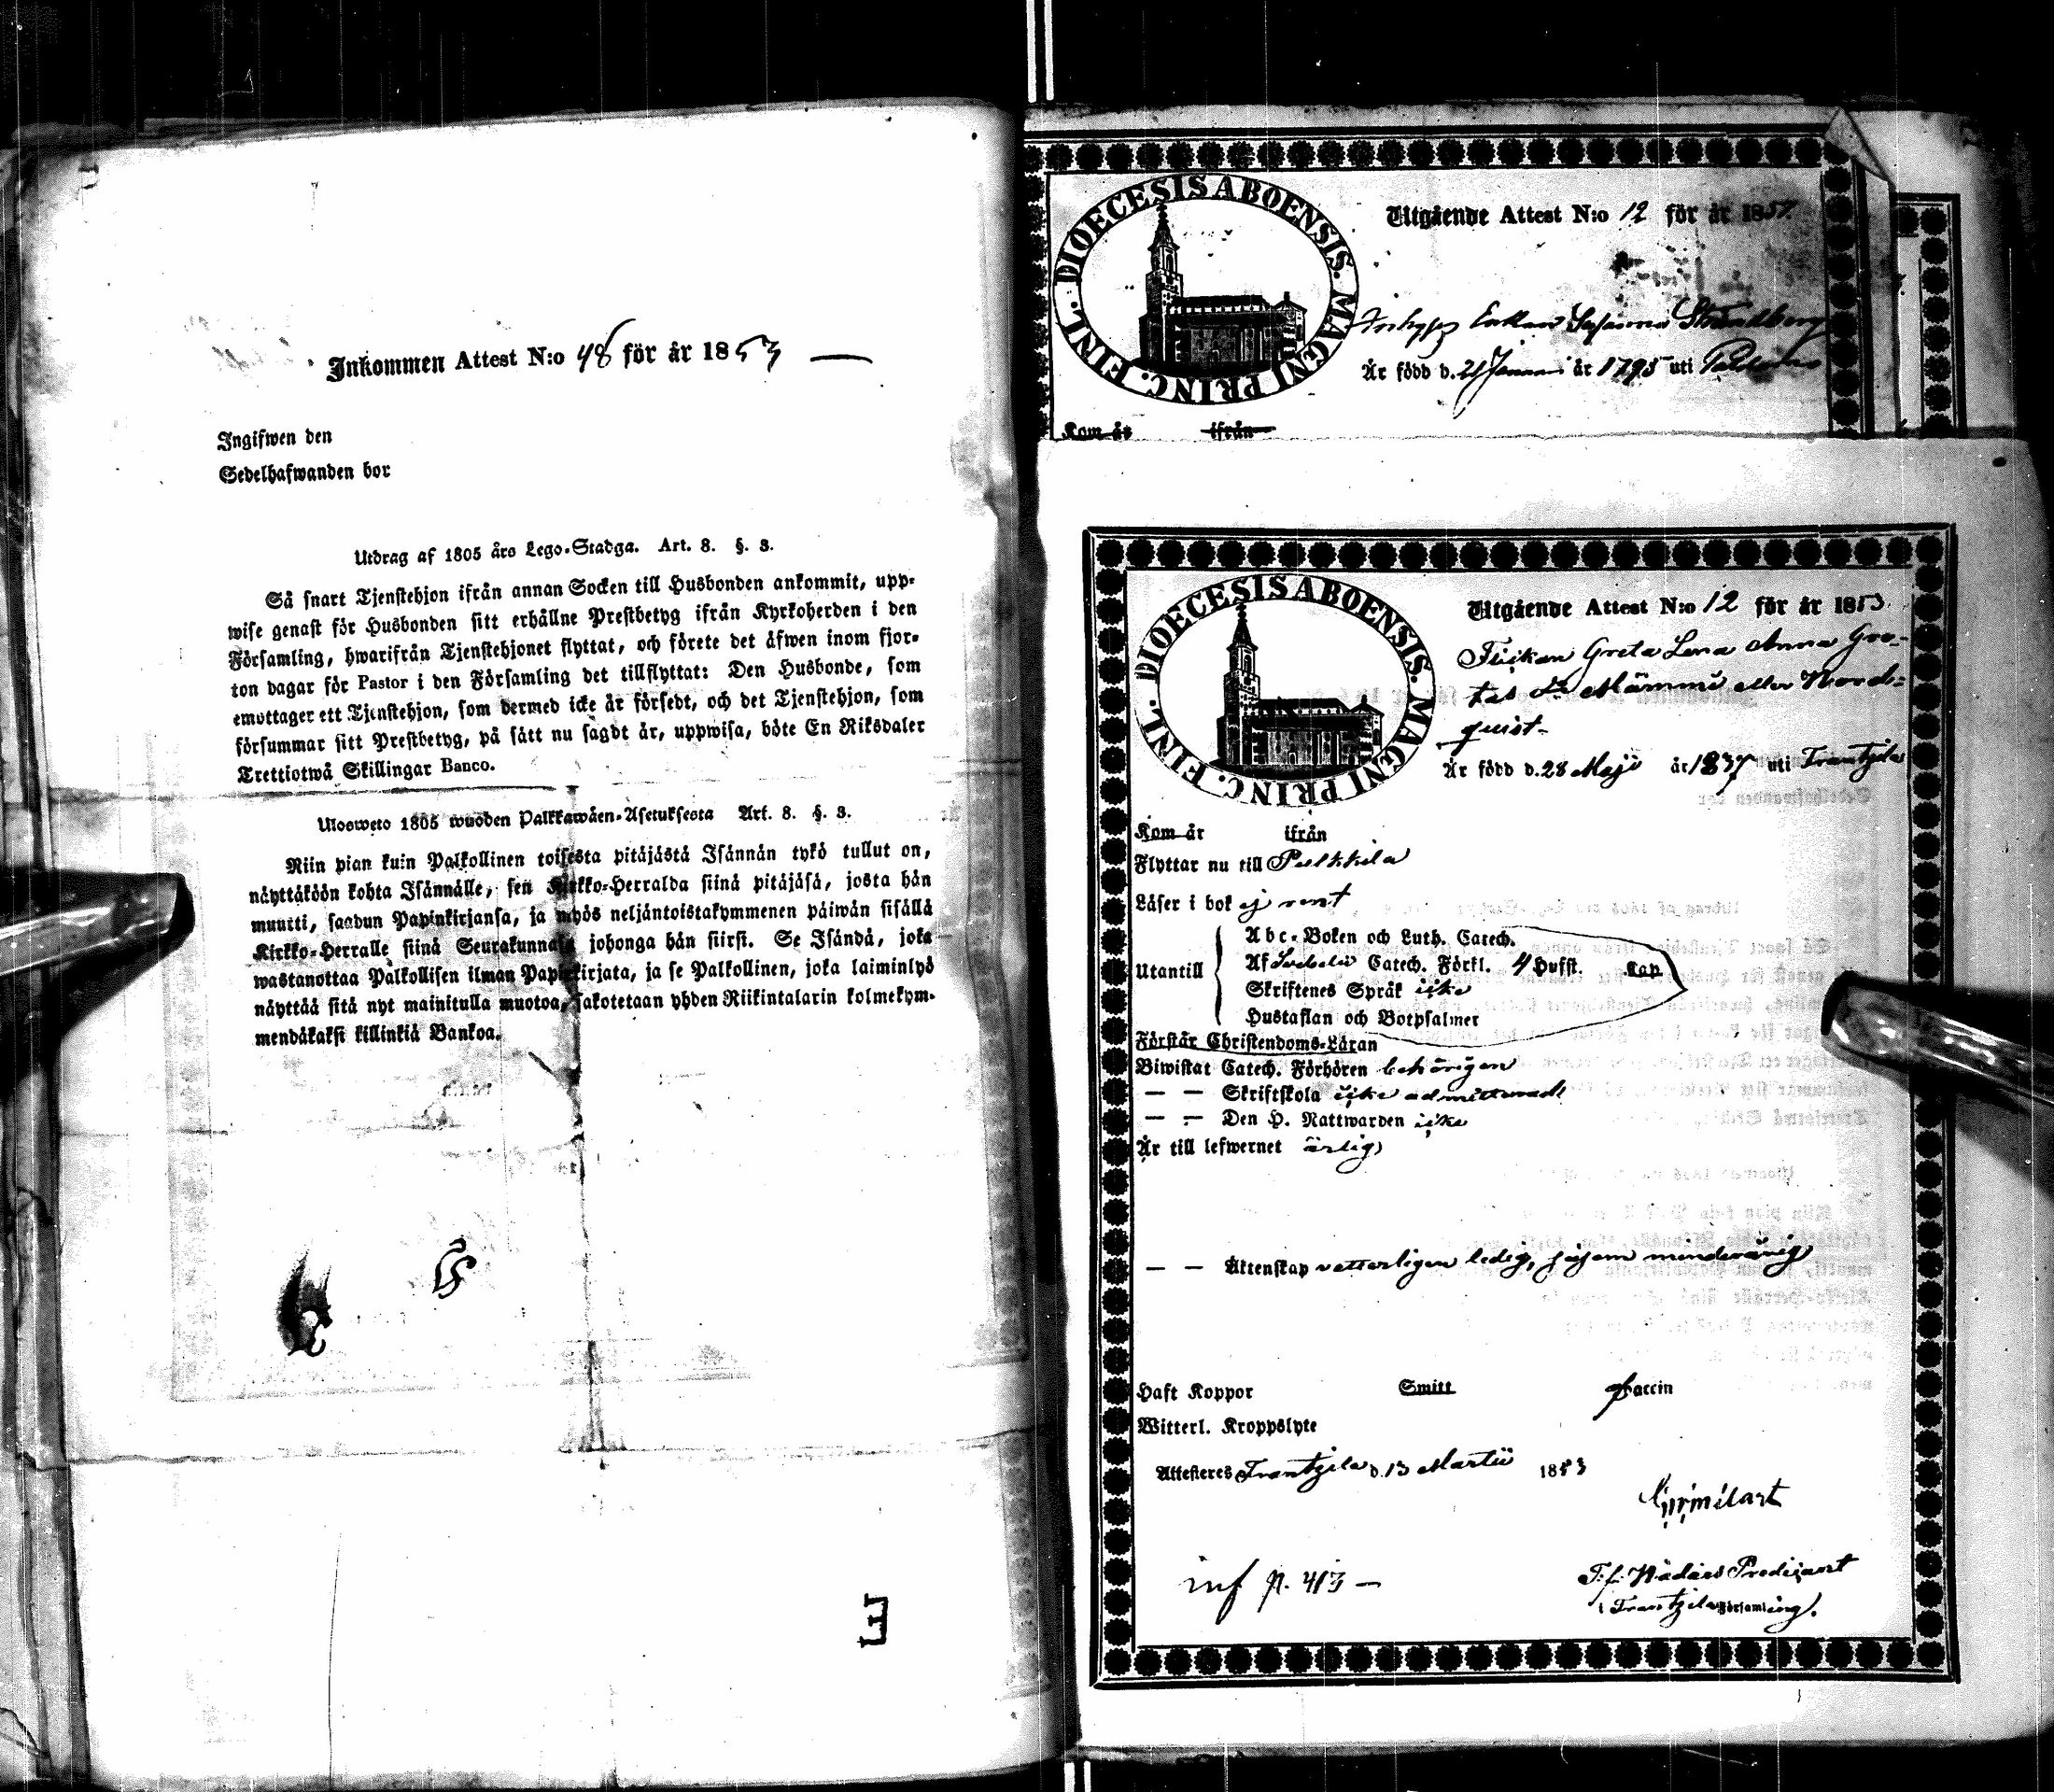 Inkommen Attest N:o 48 för år 1853 —
Ingifwen den
Sedelhafwanden bor
Utdrag af 1805 års Lego-Stadga. Art. 8. §. 3.
Så snart Tjenstehjon ifrån annan Socken till Husbonden ankommit, upp-
wise genast för Husbonden sitt erhållne Prestbetyg ifrån Kyrkoherden i den
Församling, hwarifrån Tjenstehjonet flyttat, och förete det äfwen inom fjor-
ton dagar för Pastor i den Församling det tillflyttat: Den Husbonde, som
emottager ett Tjenstehjon, som dermed icke är försedt, och det Tjenstehjon, som
försummar sitt Prestbetyg, på sätt nu sagdt är, uppwisa, böte En Riksdaler
Trettiotwå Skillingar Banco.
Ulosweto 1805 wuoden Palkkawäen-Asetuksesta Art. 8. §. 3.
Niin pian kuin Palkollinen toisesta pitäjästä Isännän tykö tullut on,
näyttäköön kohta Isännälle, sen Kirkko-Herralda siinä pitäjäsä, josta hän
muutti, saadun Papinkirjansa, ja myös neljäntoistakymmenen päiwän sisällä
Kirkko-Herralle siinä Seurakunnasa johonga hän siirsi. Se Isändä, joka
wastanottaa Palkollisen ilman Papinkirjata, ja se Palkollinen, joka laiminlyö
näyttää sitä nyt mainitulla muotoa, sakotetaan yhden Riikintalarin kolmekym-
mendäkaksi killinkiä Bankoa.
DIOECESIS ABOENSIS. MAGNI PRINC. FINL.
Utgående Attest N:o 12 för år 1857.
Enkan Susanna Strandberg
Är född d. 21 Januari år 1795 uti Paldamo
Kom år ifrån
DIOECESIS ABOENSIS. MAGNI PRINC. FINL.
Utgående Attest N:o 12 för år 1853.
Flickan Greta Lena Anna Gre-
tas dr Mämmi eller Nord-
quist
Är född d. 28 Maji år 1837 uti Frantzila
Kom år ifrån
Flyttar nu till Pulkkila
Läser i bok ej rent
Utantill
Abc-Boken och Luth. Catech.
Af Svebelii Catech. Förkl. 4 Hufst. Cap
Skriftenes Språk icke
Hustaflan och Botpsalmer
Förstår Christendoms-Läran
Biwistat Catech. Förhören behörigen
— — Skriftskola icke admitterad
— — Den H. Nattwarden icke
Är till lefwernet ärlig
— — Äktenskap vetterligen ledig, såsom minderårig
Haft Koppor Smitt Vaccin
Witterl. Kroppslyte
Attesteres Frantzila d. 13 Martii 1853
inf p. 413 —
T. f. Nådårs Predikant
i Frantzila Församling.